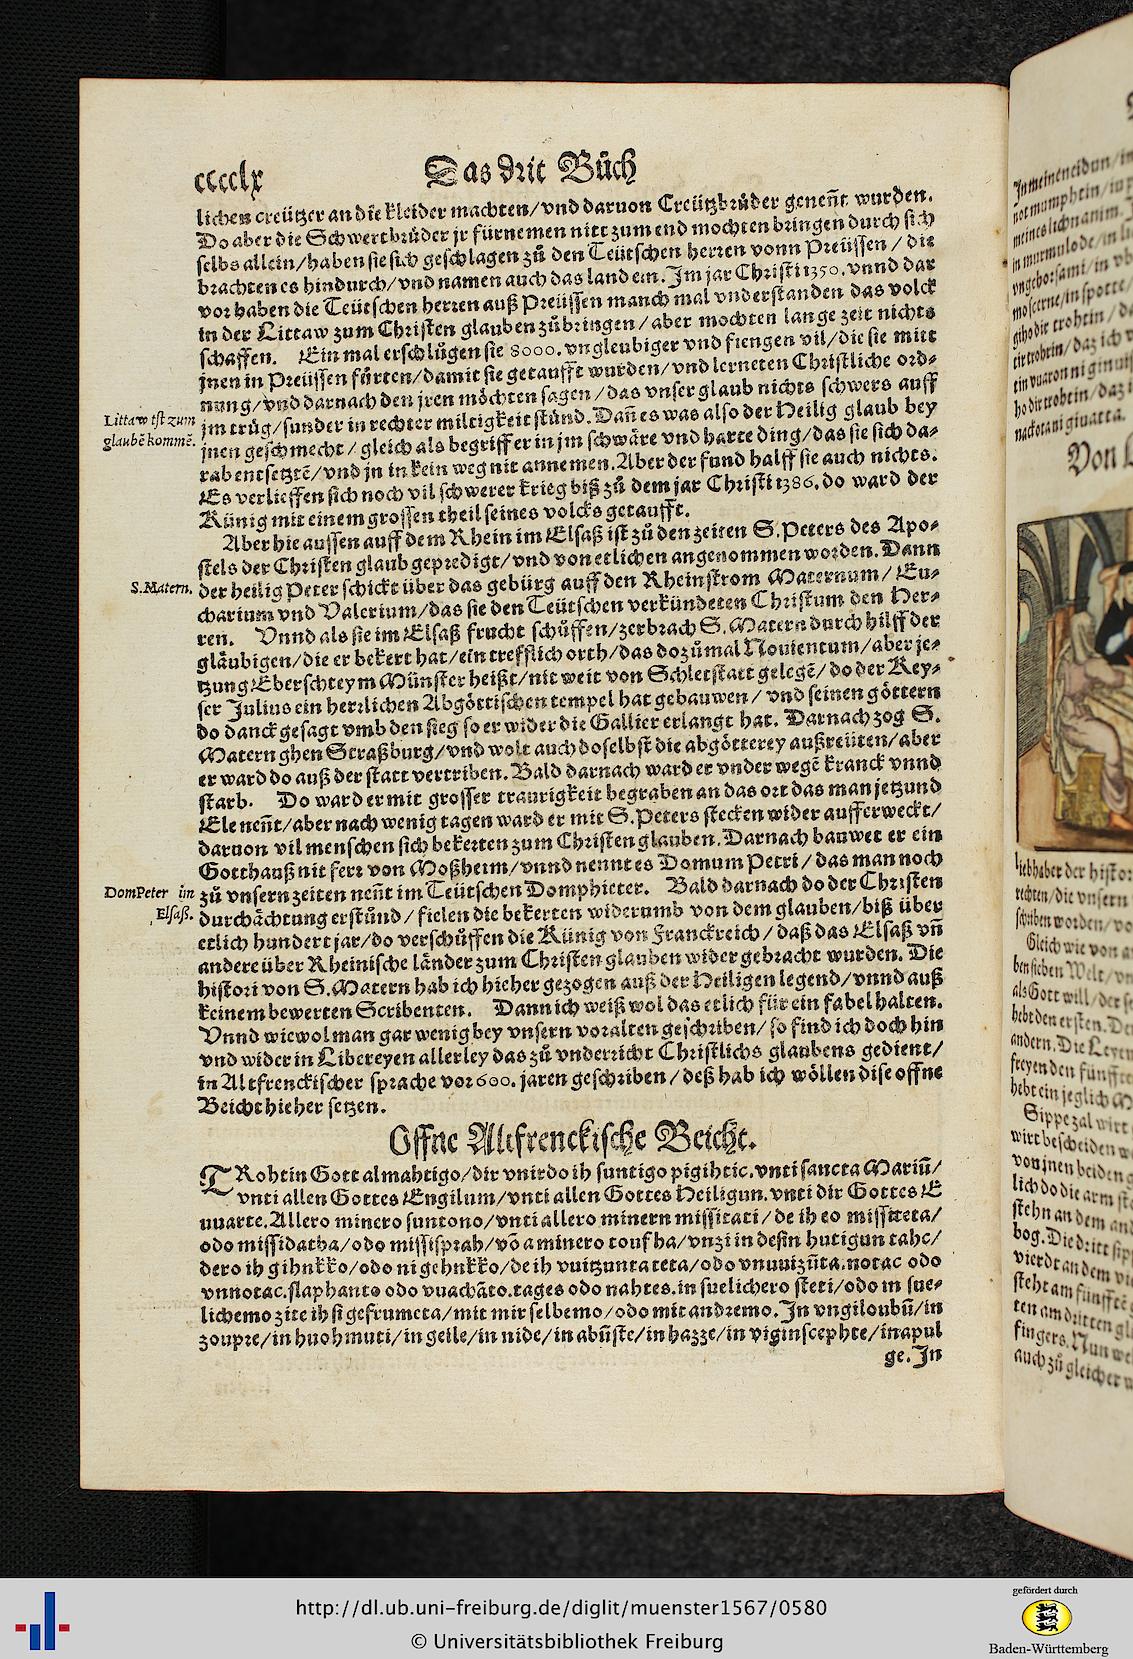 ccccLx
Das drit Bůch
lichen creützer an die kleider machten/vnd daruon Creützbrůder genent̃ wurden.
Do aber die Schwertbrůder jr fürnemen nitt zum end mochten bringen durch sich
selbs allein/haben sie sich geschlagen zů den Teütschen herren vonn Preüssen / die
brachten es hindurch/vnd namen auch das land ein. Im jar Christi 1350. vnnd dar
vor haben die Teütschen herren auß Preüssen manch mal vnderstanden das volck
in der Littaw zum Christen glauben zůbringen/aber mochten lange zeit nichts
schaffen. Ein mal erschlůgen sie 8000. vngleubiger vnd fiengen vil/die sie mitt
jnen in Preüssen fürten/damit sie getaufft wurden/vnd lerneten Christliche ord-
nung/vnd darnach den jren möchten sagen/das vnser glaub nichts schwers auff
Littaw ist zum
glaubē kommē.
jm trüg/sunder in rechter miltigkeit stůnd. Dañ es was also der Heilig glaub bey
jnen geschmecht/gleich als begriff er in jm schwäre vnd harte ding/das sie sich da-
rab entsetztē/vnd jn in kein weg nit annemen. Aber der fund halff sie auch nichts.
Es verlieffen sich noch vil schwerer krieg biß zů dem jar Christi 1386. do ward der
Künig mit einem grossen theil seines volcks getaufft.
Aber hie aussen auff dem Rhein im Elsaß ist zů den zeiten S. Peters des Apo-
stels der Christen glaub gepredigt/vnd von etlichen angenommen worden. Dann
S. Matern.
der heilig Peter schickt über das gebürg auff den Rheinstrom Maternum/ Eu-
charium vnd Valerium/das sie den Teütschen verkündeten Christum den Her-
ren. Vnnd als sie im Elsaß frucht schůffen/zerbrach S. Matern durch hilff der
gläubigen/die er bekert hat/ein trefflich orth/das dozůmal Nouientum/aber je-
tzung Eberschteym Münster heißt/nit weit von Schletstatt gelegē/do der Key-
ser Julius ein herrlichen Abgöttischen tempel hat gebauwen/ vnd seinen göttern
do danck gesagt vmb den sieg so er wider die Gallier erlangt hat. Darnach zog S.
Matern ghen Straßburg/vnd wolt auch doselbst die abgötterey außreüten/aber
er ward do auß der statt vertriben. Bald darnach ward er vnder wegē kranck vnnd
starb. Do ward er mit grosser traurigkeit begraben an das ort das man jetzund
Ele neñt/aber nach wenig tagen ward er mit S. Peters stecken wider aufferweckt/
daruon vil menschen sich bekerten zum Christen glauben. Darnach bauwet er ein
Gotthauß nit ferr von Moßheim/vnnd nennt es Domum Petri/das man noch
DomPeter im
Elsaß.
zů vnsern zeiten neñt im Teütschen Domphieter. Bald darnach do der Christen
durchächtung erstůnd/fielen die bekerten widerumb von dem glauben/biß über
etlich hundert jar/do verschůffen die Künig von Franckreich/daß das Elsaß vñ
andere über Rheinische länder zum Christen glauben wider gebracht wurden. Die
histori von S. Matern hab ich hieher gezogen auß der Heiligen legend/vnnd auß
keinem bewerten Scribenten. Dann ich weiß wol das etlich für ein fabel halten.
Vnnd wiewol man gar wenig bey vnsern voralten geschriben/so find ich doch hin
vnd wider in Libereyen allerley das zů vnderricht Christlichs glaubens gedient/
in Altfrenckischer sprache vor 600. jaren geschriben/deß hab ich wöllen dise offne
Beicht hieher setzen.
Offne Altfrenckische Beicht.
TRohtin Gott almahtigo/dir vnirdo ih suntigo pigihtic. vnti sancta Mariũ/
vnti allen Gottes Engilum/vnti allen Gottes Heiligun. vnti dir Gottes E
uuarte. Allero minero suntono/vnti allero minern missitati/de ih eo missiteta/
odo missidatha/odo missisprah/võ aminero touf ha/vnzi in desin hutigun tahc/
dero ih gihnkko/odo ni gehnkko/de ih vuitzunta teta/odo vnuuizũta. notac odo
vnnotac. slaphanto odo vuachãto. tages odo nahtes. in suelichero steti/odo in sue-
lichemo zite ih si gefrumeta/mit mir selbemo/odo mit andremo. In vngiloubũ/in
zoupre/in huohmuti/in geile/in nide/in abũste/in hazze/in viginscephte/in apul
ge. In
Von
http://dl.ub.uni-freiburg.de/diglit/muenster1567/0580
© Universitätsbibliothek Freiburg
gefördert durch
Baden-Württemberg